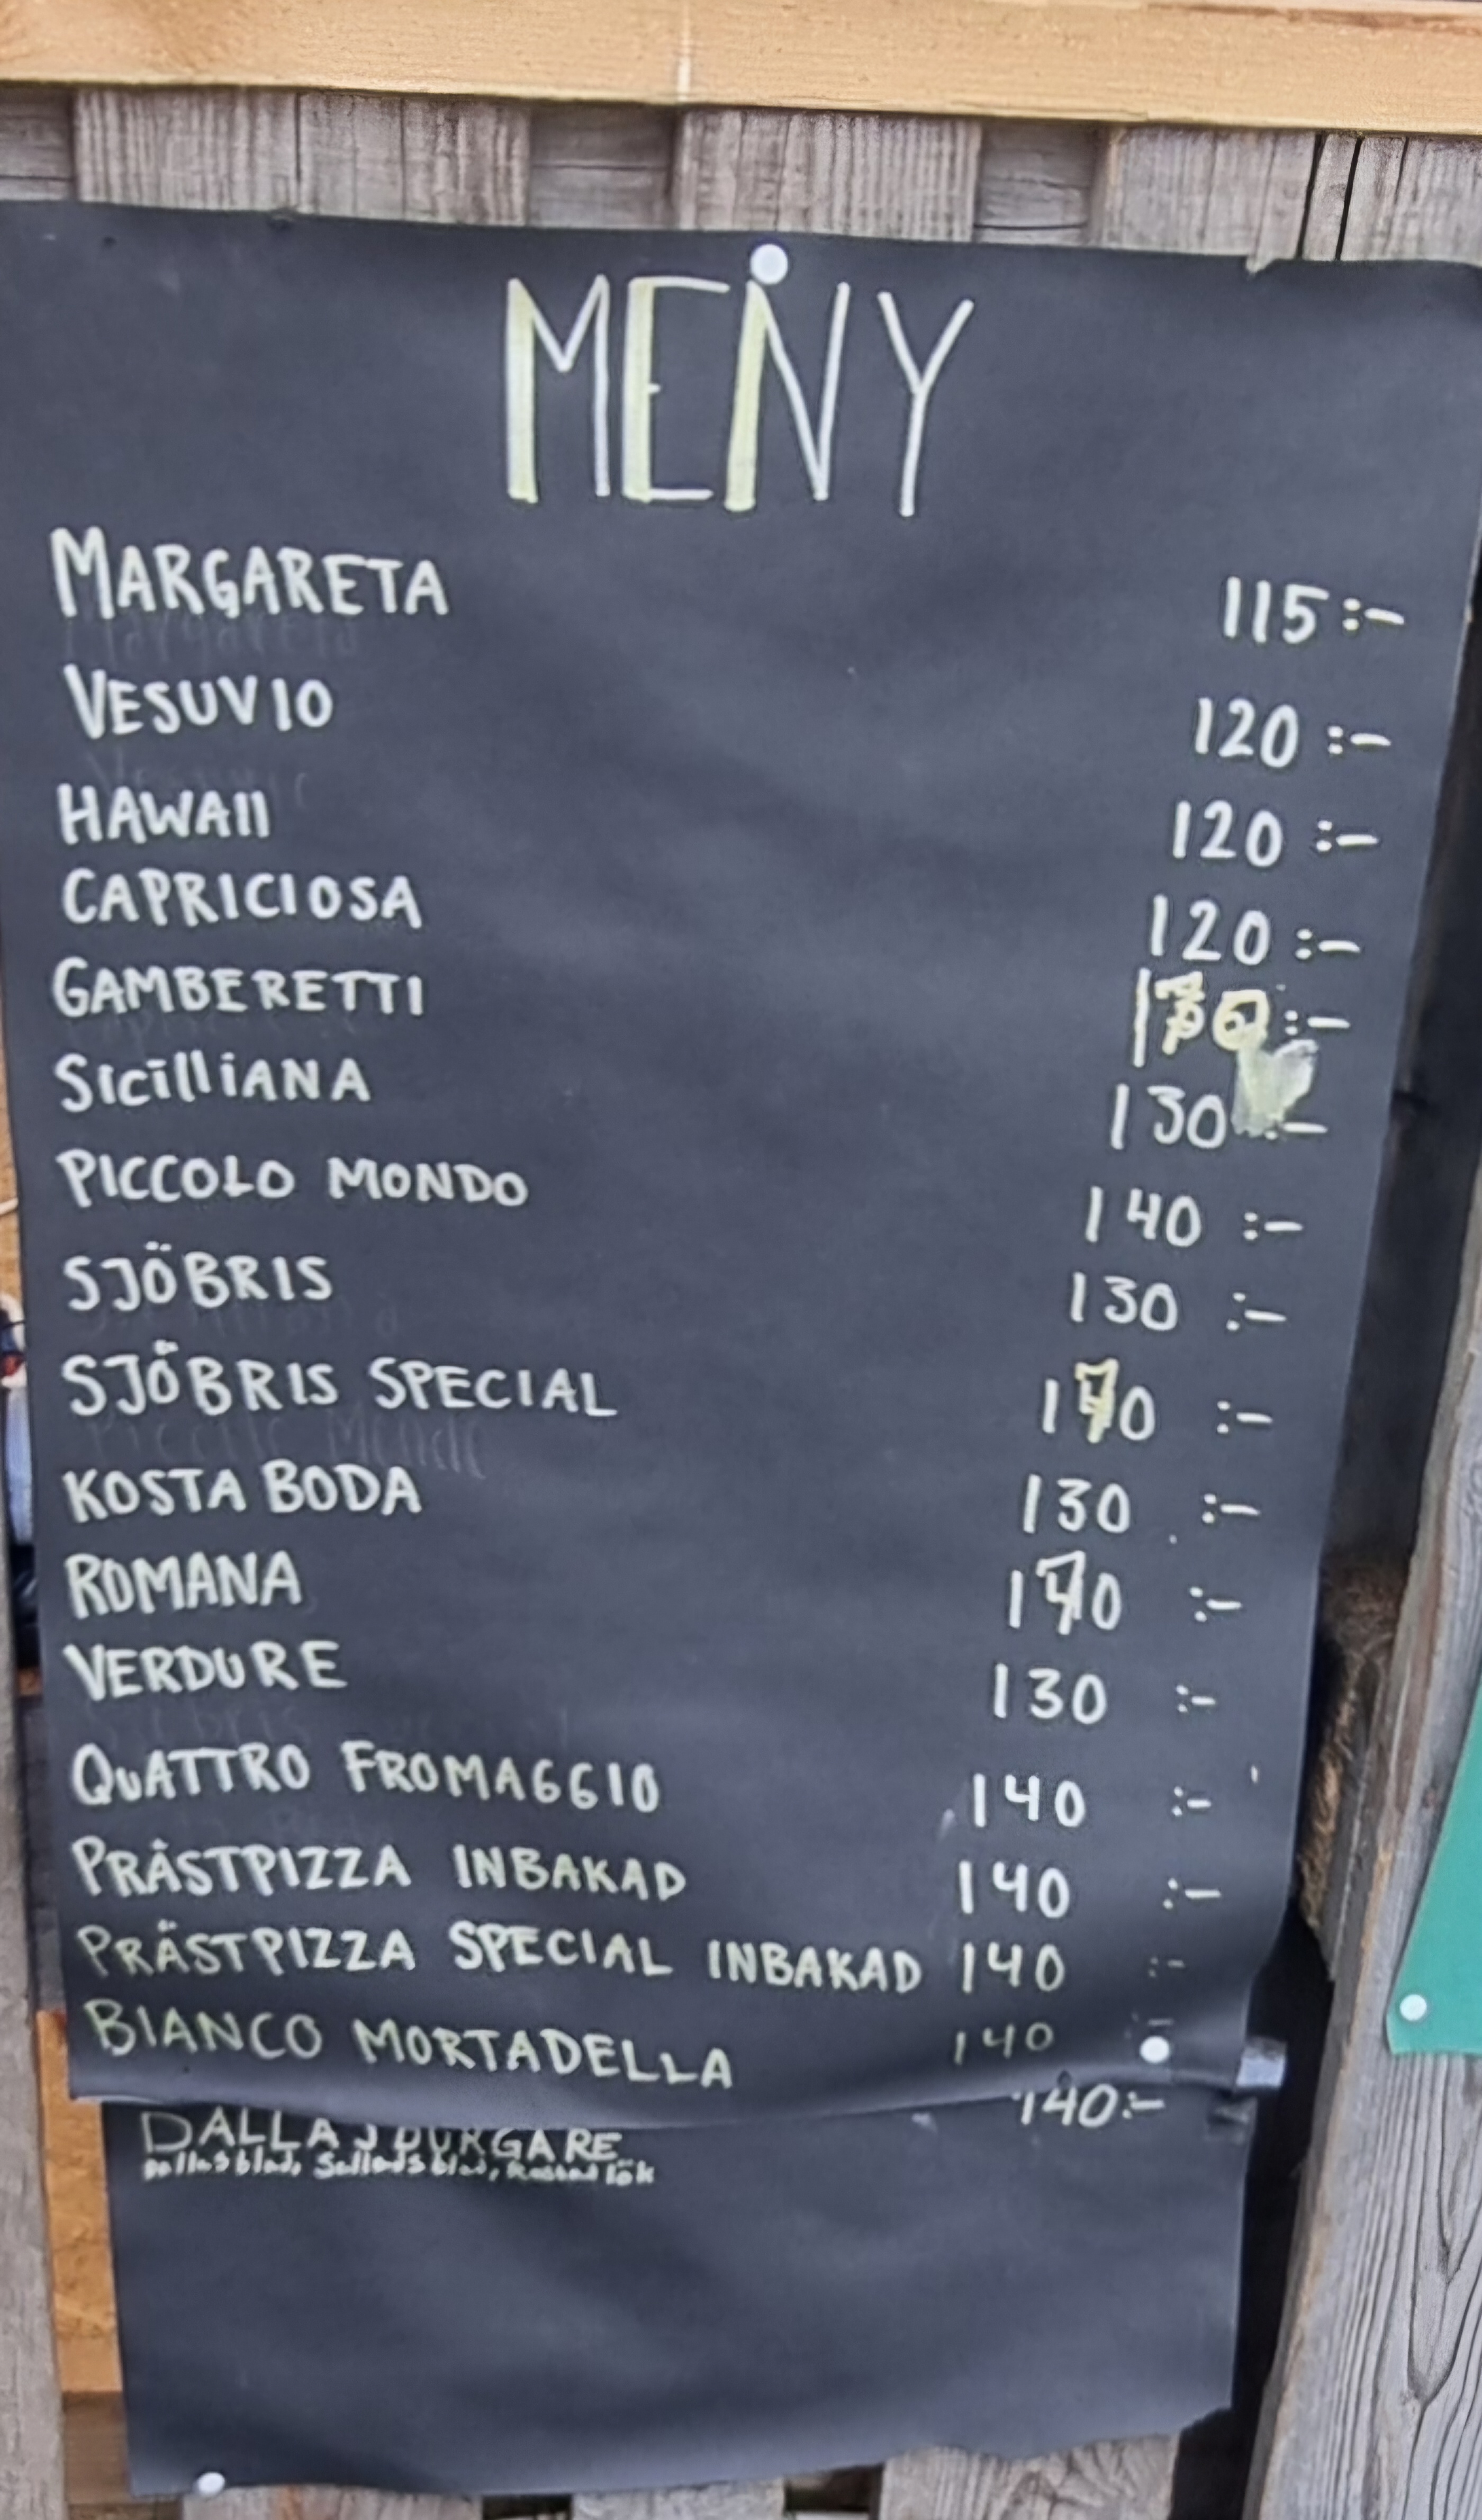 MENY
MARGARETA 115:-
VESUVIO 120:-
HAWAII 120:-
CAPRICIOSA 120:-
GAMBERETTI :-
SICILLIANA 130:-
PICCOLO MONDO 140:-
SJÖBRIS 130:-
SJÖBRIS SPECIAL :-
KOSTA BODA 130:-
ROMANA :-
VERDURE 130:-
QUATTRO FROMAGGIO 140:-
PRÄSTPIZZA INBAKAD 140:-
PRÄSTPIZZA SPECIAL INBAKAD 140:-
BIANCO MORTADELLA 140:-
140:-